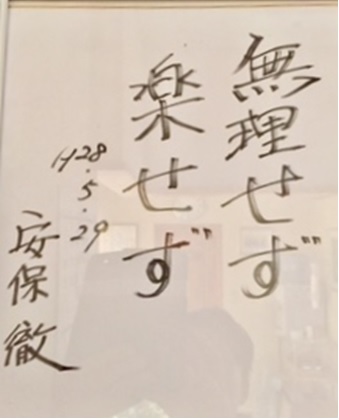 無理せず
楽せず
H28.5.29
安保徹